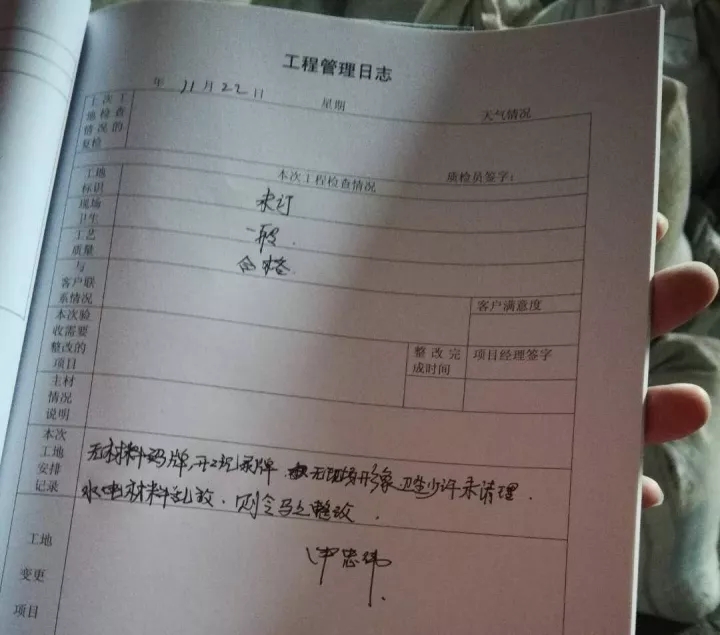 工程管理日志
年 11月22日 星期 天气情况
上次工
地检查
情况的
复检
本次工程检查情况 质检员签字：
工地
标识
未订
现场
卫生
一般.
工艺
质量
合格
与
客户联
系情况
客户满意度
本次验
收需要
整改的
项目
整改完
成时间
项目经理签字
主材
情况
说明
本次
工地
安排
记录
无材料码牌,开工纪录牌 无现场形象 卫生少许未清理.
水电材料乱放. 则令马上整改.
工地
变更
项目